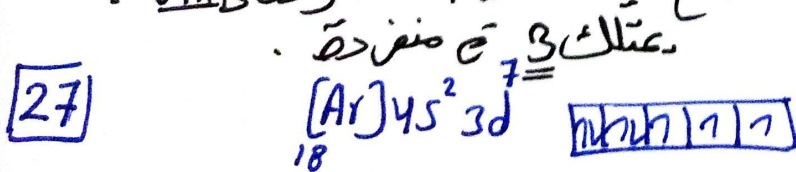 يمتلك 3 e منفردة .
27 [Ar] 4s² 3d⁷
18